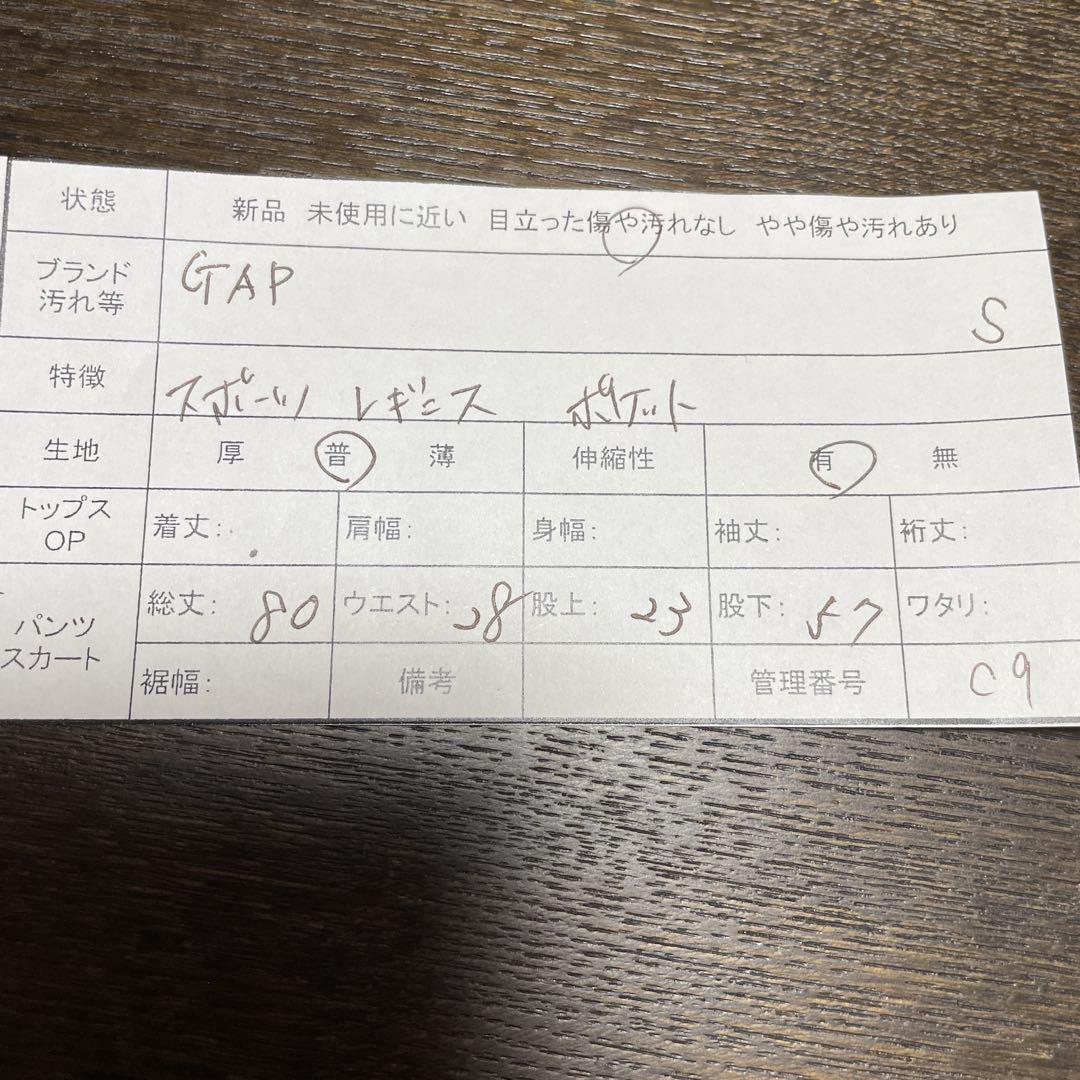 状態 新品 未使用に近い 目立った傷や汚れなし やや傷や汚れあり
ブランド
汚れ等 GAP S
特徴 スポーツ レギンス ポケット
生地 厚 普 薄 伸縮性 有 無
トップス
OP 着丈: 肩幅: 身幅: 袖丈: 裄丈:
パンツ
スカート 総丈: 80 ウエスト: 28 股上: 23 股下: 57 ワタリ:
裾幅: 備考 管理番号 C9